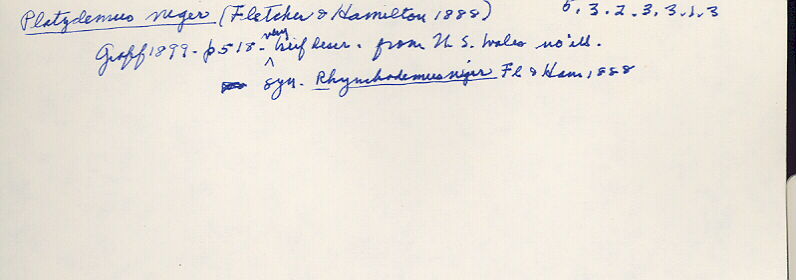 Platydemus niger (Fletcher & Hamilton 1888) 6.3.2.3.3.1.3
Graff 1899 - p 518 - very brief descr. from N S. Wales no ill.
syn. Rhynchodemus niger Fl & Ham, 1888